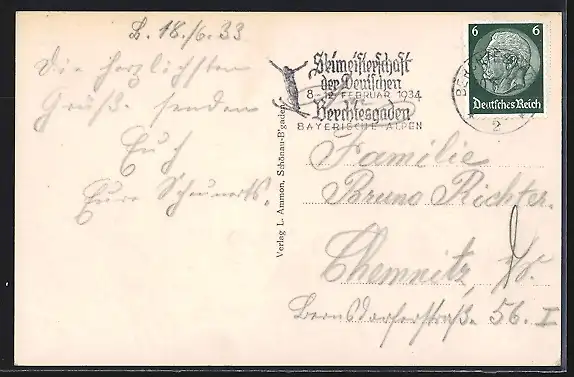 B. 18./6. 33
Die herzlichsten
Grüße senden
Euch
Eure Scheunerts.
Verlag L. Ammon, Schönau-B'gaden
Skimeisterschaft
der Deutschen
FEBRUAR 1934
Berchtesgaden
BAYERISCHE ALPEN
6 6
Deutsches Reich
2
Familie
Bruno Richter.
Chemnitz,
Bernsdorferstraße 56. I